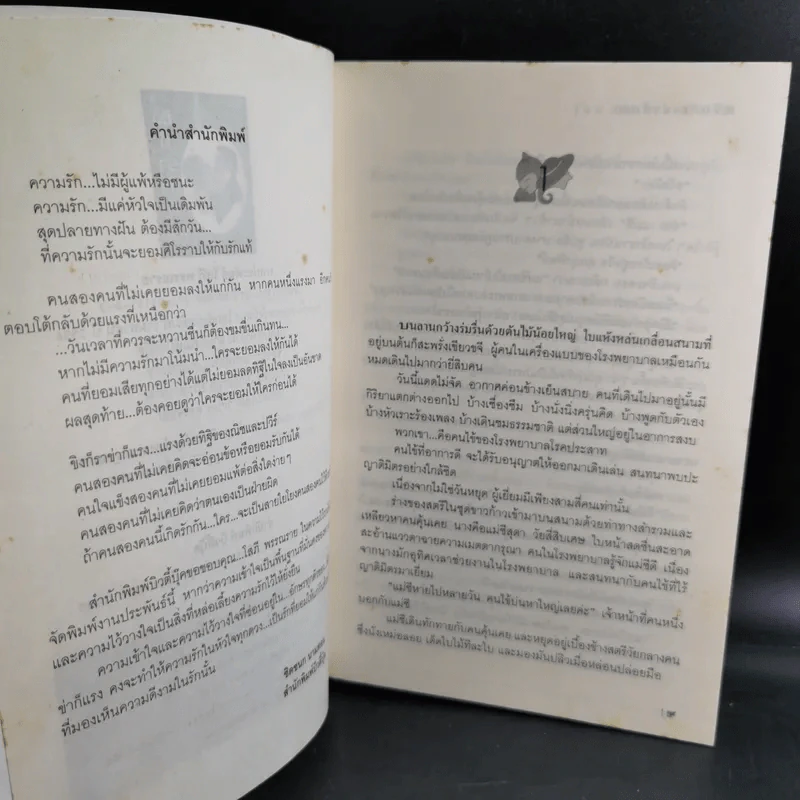 คำนำสำนักพิมพ์
ความรัก...ไม่มีผู้แพ้หรือชนะ
ความรัก...มีแค่หัวใจเป็นเดิมพัน
สุดปลายทางฝัน ต้องมีสักวัน...
ที่ความรักนั้นจะยอมศิโรราบให้กับรักแท้
คนสองคนที่ไม่เคยยอมลงให้แก่กัน หากคนหนึ่งแรงมา
ตอบโต้กลับด้วยแรงที่เหนือกว่า
...วันเวลาที่ควรจะหวานชื่นก็ต้องขมขื่นเกินทน...
หากไม่มีความรักมาโน้มนำ...ใครจะยอมลงให้กันได้
คนที่ยอมเสียทุกอย่างได้แต่ไม่ยอมลดทิฐิในใจลงเป็นอันขาด
ผลสุดท้าย...ต้องคอยดูว่าใครจะยอมให้ใครก่อนได้
ขิงก็ราข่าก็แรง...แรงด้วยทิฐิของณิชและปวีร์
คนสองคนที่ไม่เคยคิดจะอ่อนข้อหรือยอมรับกันได้
คนใจแข็งสองคนที่ไม่เคยยอมแพ้ต่อสิ่งใดง่ายๆ
คนสองคนที่ไม่เคยคิดว่าตนเองเป็นฝ่ายผิด
ถ้าคนสองคนนี้เกิดรักกัน...ใคร...จะเป็นสายใยโยงคนสองคน
สำนักพิมพ์บิวตี้บุ๊คขอขอบคุณ...โสภี พรรณราย
จัดพิมพ์งานประพันธ์นี้ หากว่าความเข้าใจเป็นพื้นฐานที่มั่นคง
และความไว้วางใจเป็นสิ่งที่หล่อเลี้ยงความรักไว้ให้ยั่งยืน
ความเข้าใจและความไว้วางใจที่ซ่อนอยู่ใน...อักษรทุกตัว
ข่าก็แรง คงจะทำให้ความรักในหัวใจทุกดวง...เป็นรักที่ยอมให้
ที่มองเห็นความดีงามในรักนั้น
ชิดชนก
สำนักพิมพ์บิวตี้บุ๊ค
1
บนลานกว้างร่มรื่นด้วยต้นไม้น้อยใหญ่ ใบแห้งหล่นเกลื่อนสนามที่
อยู่บนต้นก็สะพรั่งเขียวขจี ผู้คนในเครื่องแบบของโรงพยาบาลเหมือนกัน
หมดเดินไปมากว่ายี่สิบคน
วันนี้แดดไม่จัด อากาศค่อนข้างเย็นสบาย คนที่เดินไปมาอยู่นั้นมี
กิริยาแตกต่างออกไป บ้างเซื่องซึม บ้างนั่งนิ่งครุ่นคิด บ้างพูดกับตัวเอง
บ้างหัวเราะร้องเพลง บ้างเดินชมธรรมชาติ แต่ส่วนใหญ่อยู่ในอาการสงบ
พวกเขา...คือคนไข้ของโรงพยาบาลโรคประสาท
คนไข้ที่อาการดี จะได้รับอนุญาตให้ออกมาเดินเล่น สนทนาพบปะ
ญาติมิตรอย่างใกล้ชิด
เนื่องจากไม่ใช่วันหยุด ผู้เยี่ยมมีเพียงสามสี่คนเท่านั้น
ร่างของสตรีในชุดขาวก้าวเข้ามาบนสนามด้วยท่าทางสำรวมและ
เหลียวหาคนคุ้นเคย นางคือแม่ชีสุดา วัยสี่สิบเศษ ใบหน้าสดชื่นสะอาด
สะอ้านแววตาฉายความเมตตากรุณา คนในโรงพยาบาลรู้จักแม่ชีดี เนื่อง
จากนางมักอุทิศเวลาช่วยงานในโรงพยาบาล และสนทนากับคนไข้ที่ไร้
ญาติมิตรมาเยี่ยม
"แม่ชีหายไปหลายวัน คนไข้บ่นหาใหญ่เลยค่ะ" เจ้าหน้าที่คนหนึ่ง
บอกกับแม่ชี
แม่ชีเดินทักทายกับคนคุ้นเคย และหยุดอยู่เบื้องข้างสตรีวัยกลางคน
ซึ่งนั่งเหม่อลอย เด็ดใบไม้ทีละใบ และมองมันปลิวเมื่อหล่อนปล่อยมือ